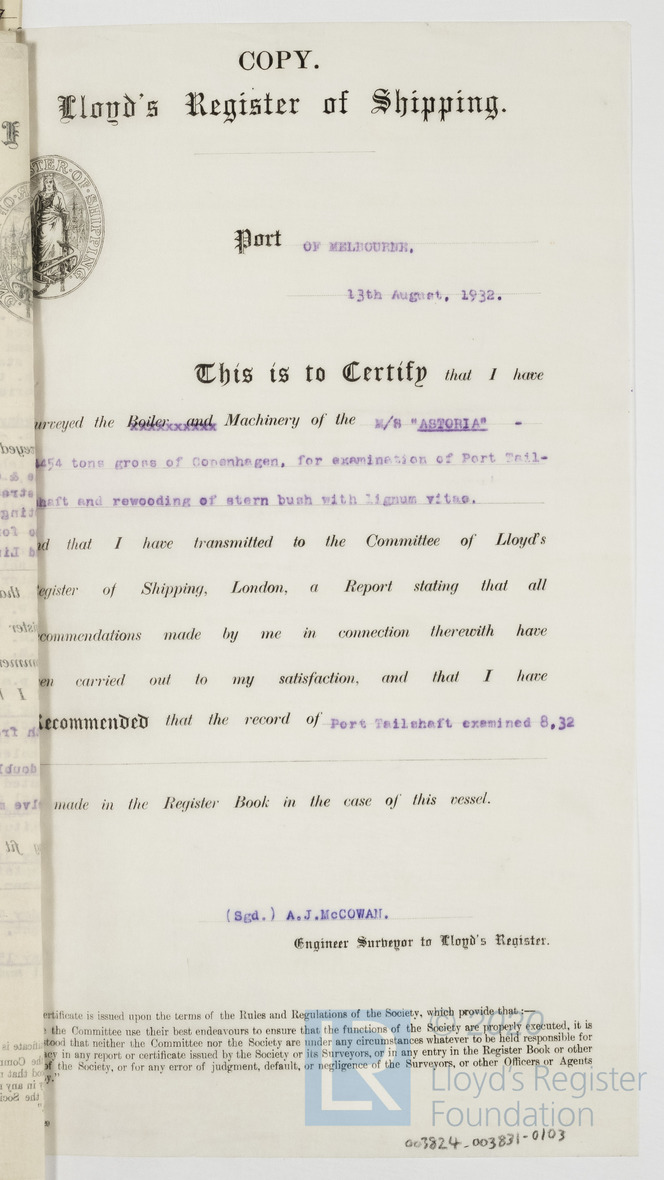 COPY.
Lloyd's Register of Shipping.
Port OF MELBOURNE.
13th August, 1932.
This is to Certify that I have
urveyed the Boiler and Machinery of the M/S "ASTORIA" -
454 tons gross of Copenhagen, for examination of Port Tail-
haft and rewooding of stern bush with lignum vitae.
d that I have transmitted to the Committee of Lloyd's
egister of Shipping, London, a Report stating that all
commendations made by me in connection therewith have
en carried out to my satisfaction, and that I have
Recommended that the record of Port Tailshaft examined 8,32
made in the Register Book in the case of this vessel.
(Sgd.) A.J.McCOWAN.
Engineer Surveyor to Lloyd's Register.
ertificate is issued upon the terms of the Rules and Regulations of the Society, which provide that:—
the Committee use their best endeavours to ensure that the functions of the Society are properly executed, it is
tood that neither the Committee nor the Society are under any circumstances whatever to be held responsible for
cy in any report or certificate issued by the Society or its Surveyors, or in any entry in the Register Book or other
of the Society, or for any error of judgment, default, or negligence of the Surveyors, or other Officers or Agents
y."
© 2020
LR
Lloyd's Register
Foundation
003824-003831-0103